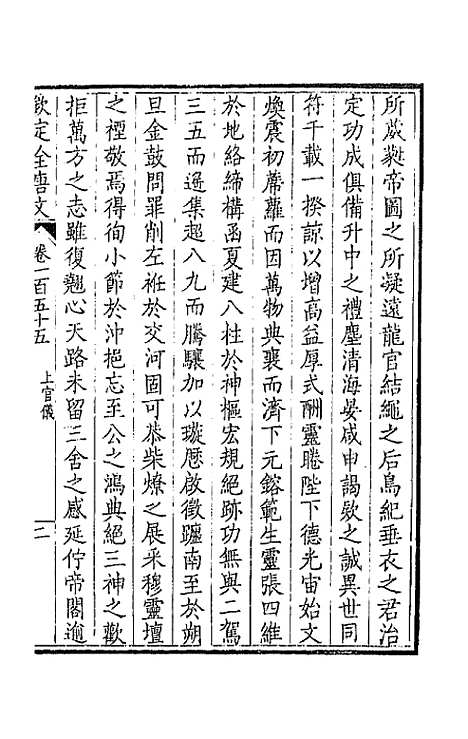 所蕆蕤帝圖之所凝遠龍官結繩之后鳥紀垂衣之君治
定功成俱備升中之禮塵清海晏咸申謁款之誠異世同
符千載一揆諒以增高益厚式酬靈睠陛下德光宙始文
煥震初蓆蘿而因萬物典襄而濟下元鎔範生靈張四維
於地絡締構函夏建八柱於神樞宏規絕跡功無與二駕
三五而遥集超八九而騰驤加以璇歷啟徵躔南至於朔
旦金鼓問罪削左袵於交河固可恭柴燎之展采穆靈壇
之禋敬焉得徇小節於沖挹忘至公之鴻典絕三神之歡
拒萬方之志雖復翹心天路未留三舍之感延佇帝閽逾
欽定全唐文
卷一百五十五
上官儀
二